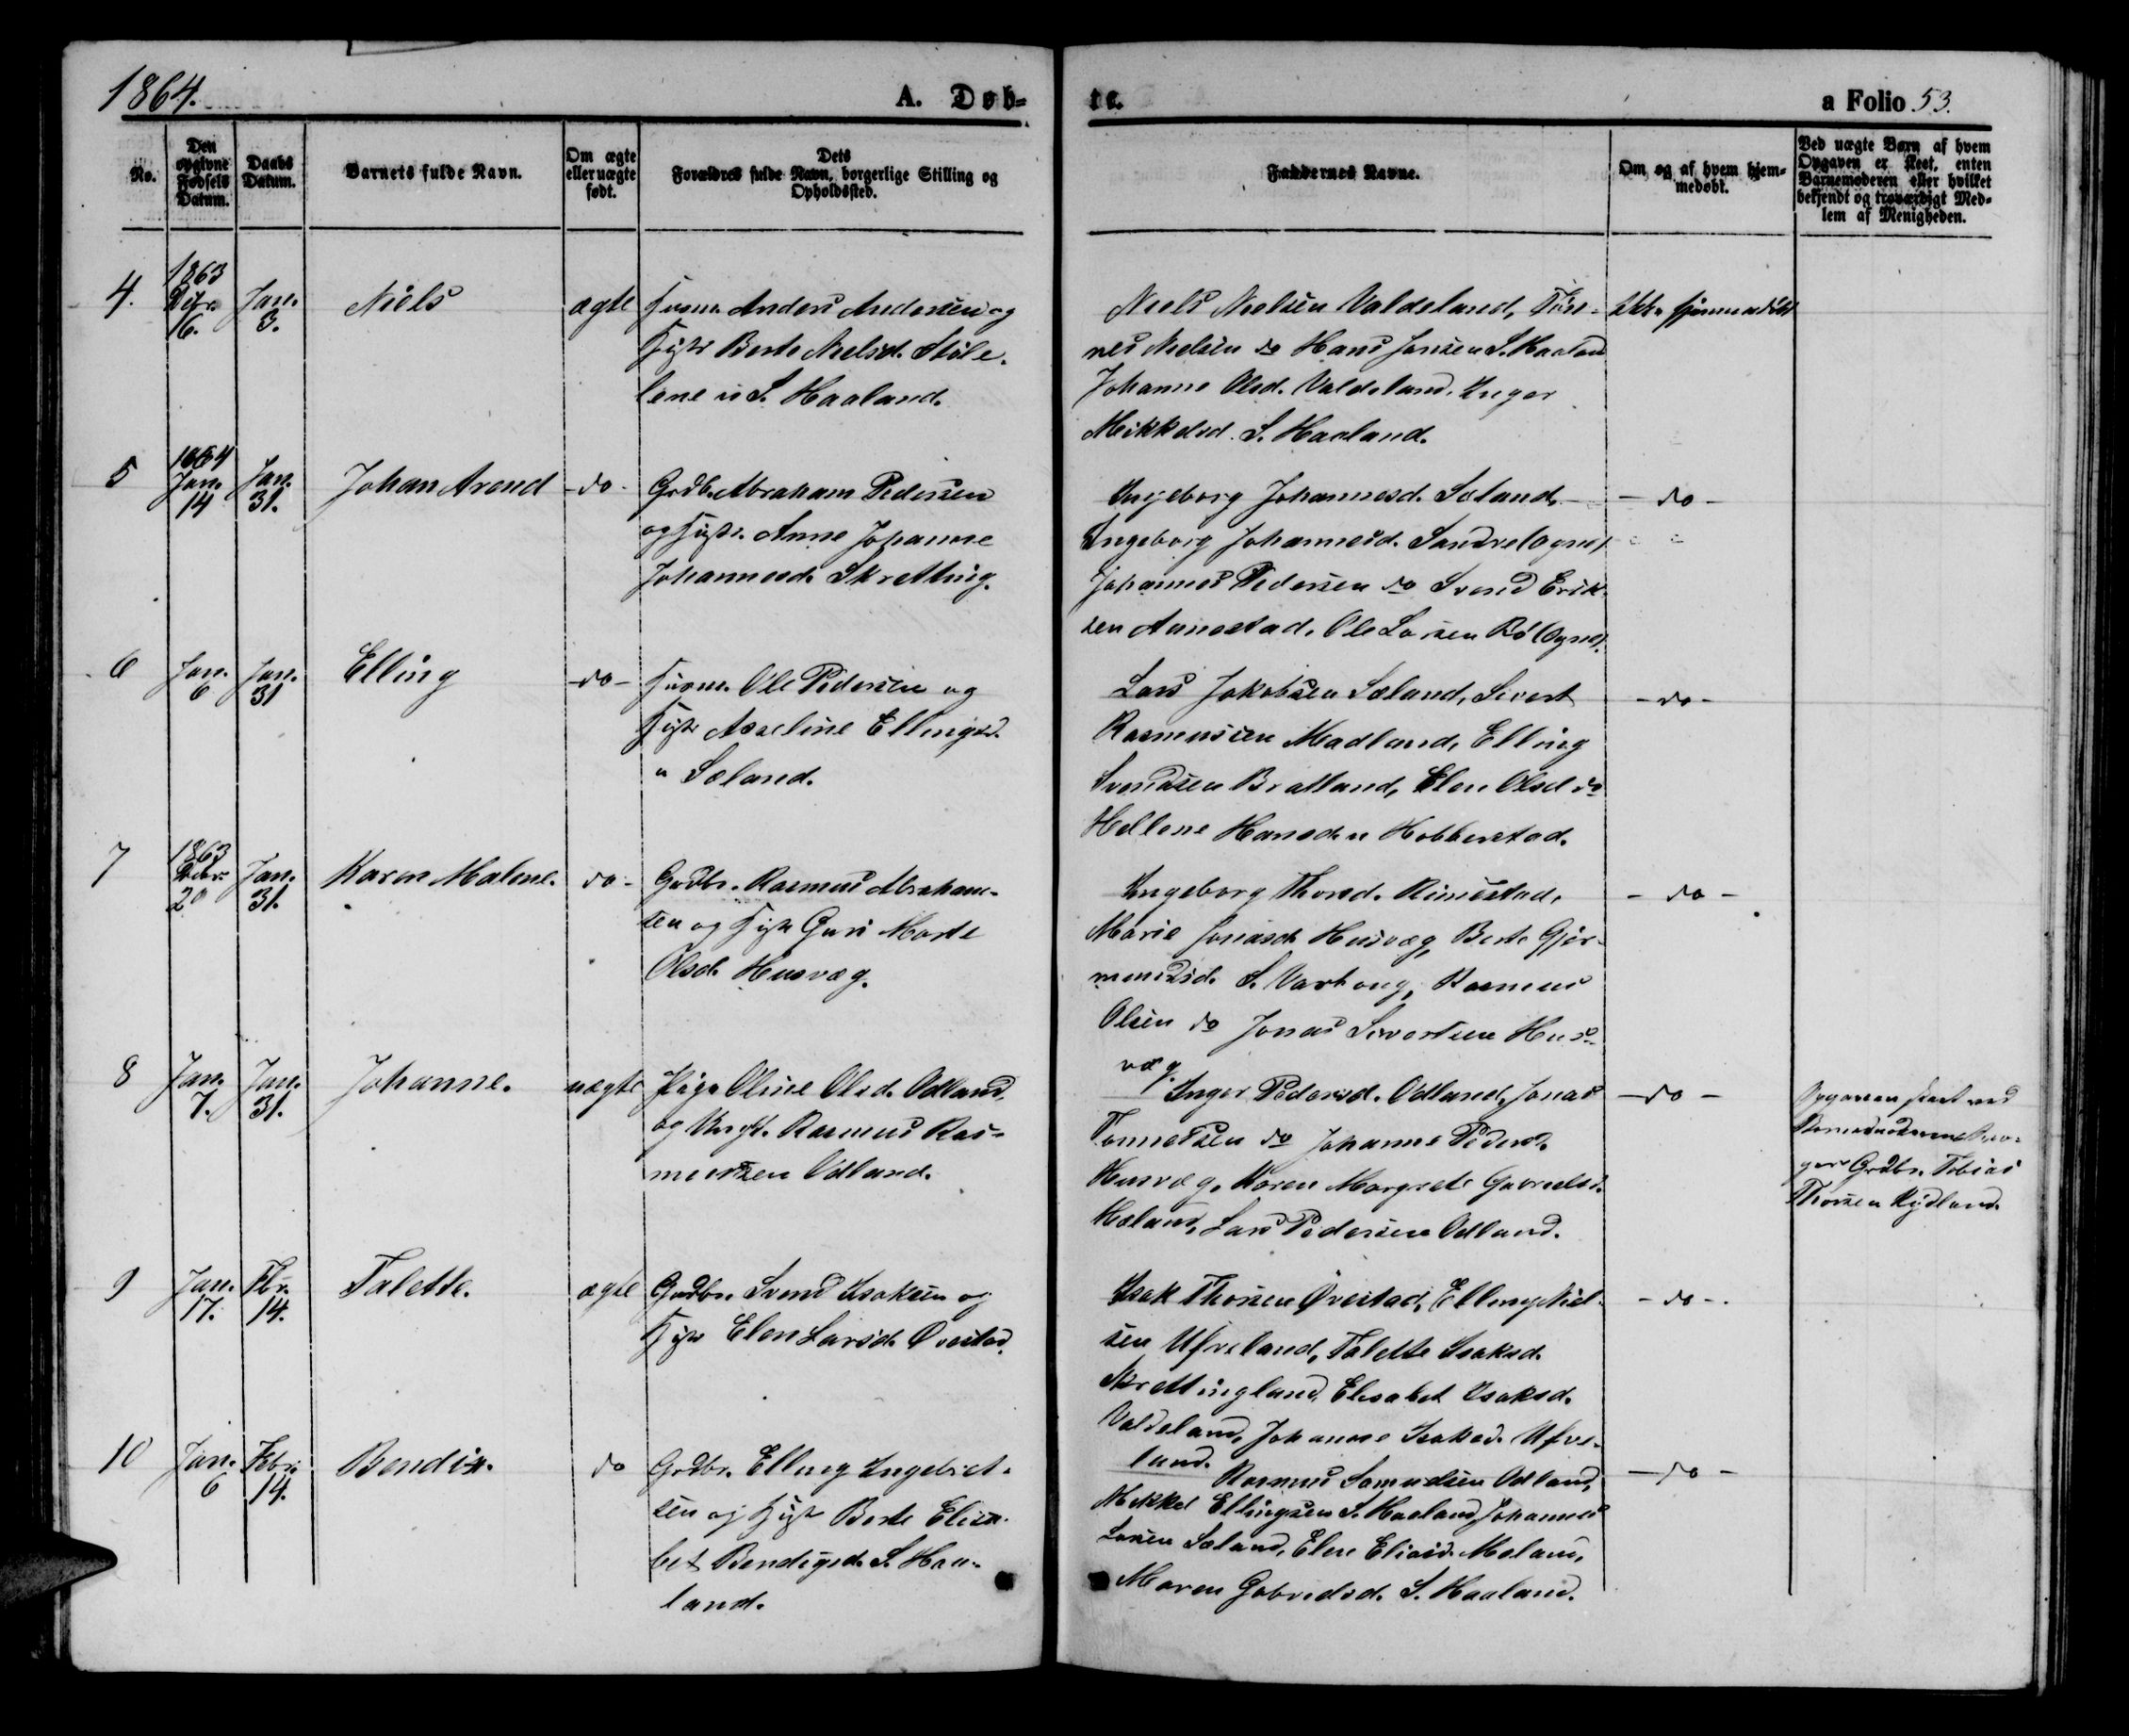 1864.
A. Døb-
te.
a Folio 53.
No.
Den opgivne Fødsels Datum.
Daabs Datum.
Barnets fulde Navn.
Om ægte eller uægte født.
Dets
Forældres fulde Navn, borgerlige Stilling og
Opholdssted.
Faddernes Navne.
Om og af hvem hjem-
medøbt.
Ved uægte Barn af hvem
Opgaven er skeet, enten
Barnemoderen eller hvilket
bekjendt og troværdigt Med-
lem af Menigheden.
4.
1863
16.
Jan.
3.
Niels
ægte
Husm. Anders Andersen og
Hustr Berte Nielsd. Stöle-
lene u S. Haaland.
Niels Nielsen Valdeland, Tön-
nes Nielsen do Hans Jonsen S. Haaland
Johanne Olsd. Valdeland, Inger
Mikkelsd. S. Haaland.
Ikke hjemmedöbt
5
1864
Jan.
14
Jan.
31.
Johan Arend
-do-
Grdbr. Abraham Pedersen
og Hustr. Anne Johanne
Johannesd. Skretting.
Ingeborg Johannesd. Sæland,
Ingeborg Johannesd. (Ogne)
Johannes Pedersen do Svend Erik-
sen Aunestad, Ole Larsen (Ogne).
- do -
6
Jan.
6
Jan.
31
Elling
-do-
Husm. Ole Pedersen og
Hustr Asseline Ellingsd.
u Sæland.
Lars Jakobsen Sæland, Sivert
Rasmussen Madland, Elling
Svendsen Bratland, Elen Olsd do
Hellene Hansd. u Hobberstad.
-do-
7
1863
Decbr.
20
Jan.
31.
Karen Malene.
do -
Grdbr. Rasmus Abraham-
sen og Hustr Guri Marte
Olsd. Husvæg.
Ingeborg Thorsd. Rimestad,
Marie Jonasd. Husvæg, Berte Gjer-
mundsd. S. Varhoug, Rasmus
Olsen do Jonas Sivertsen Hus-
væg.
- do -
8
Jan.
7.
Jan.
31.
Johanne.
uægte
Pige Oline Olsd. Odland,
og Ungk. Rasmus Ras-
mussen Odland.
Inger Pedersd. Odland, Jonas
Tönnessen do Johanne Pedersd.
Husvæg, Karen Margrete Gabrielsd.
Hæland, Lars Pedersen Odland.
-do -
Opgaven skeet ved
Grdbr. Tobias
Thorsen Rydland.
9
Jan.
17.
Fbr.
14.
Talette.
ægte
Grdbr. Svend Isaksen og
Hustr Elen Larsd. Ovestad.
Isak Thorsen Øvestad, Elling Niel-
sen Ufveland, Talette Isaksd.
Skrettingland, Elisabet Isaksd.
Valdeland, Johanne Isaksd. Ufve-
land.
- do -.
10
Jan.
6
Febr.
14.
Bendix.
do
Grdbr. Elling Ingebret-
sen og Hustr Berte Elisa-
bet Bendixsd. S. Haa-
land.
Rasmus Samuelsen Odland,
Mikkel Ellingsen S. Haaland, Johannes
Larsen Sæland, Elen Eliasd. Meland,
Maren Gabrielsd. S. Haaland.
-do -